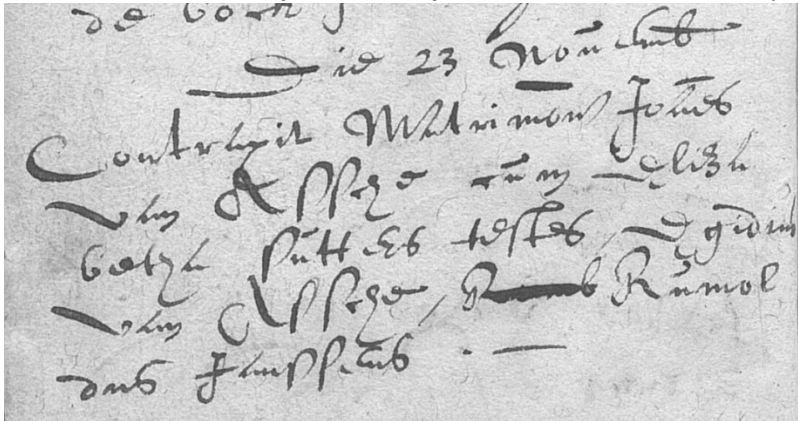 de
Die 23 Novemb
Contraxit Matrimon Joões
van Assche cum Eliza
betha tests testes, Egidius
van Assche, Rumol
dus Janssens . —